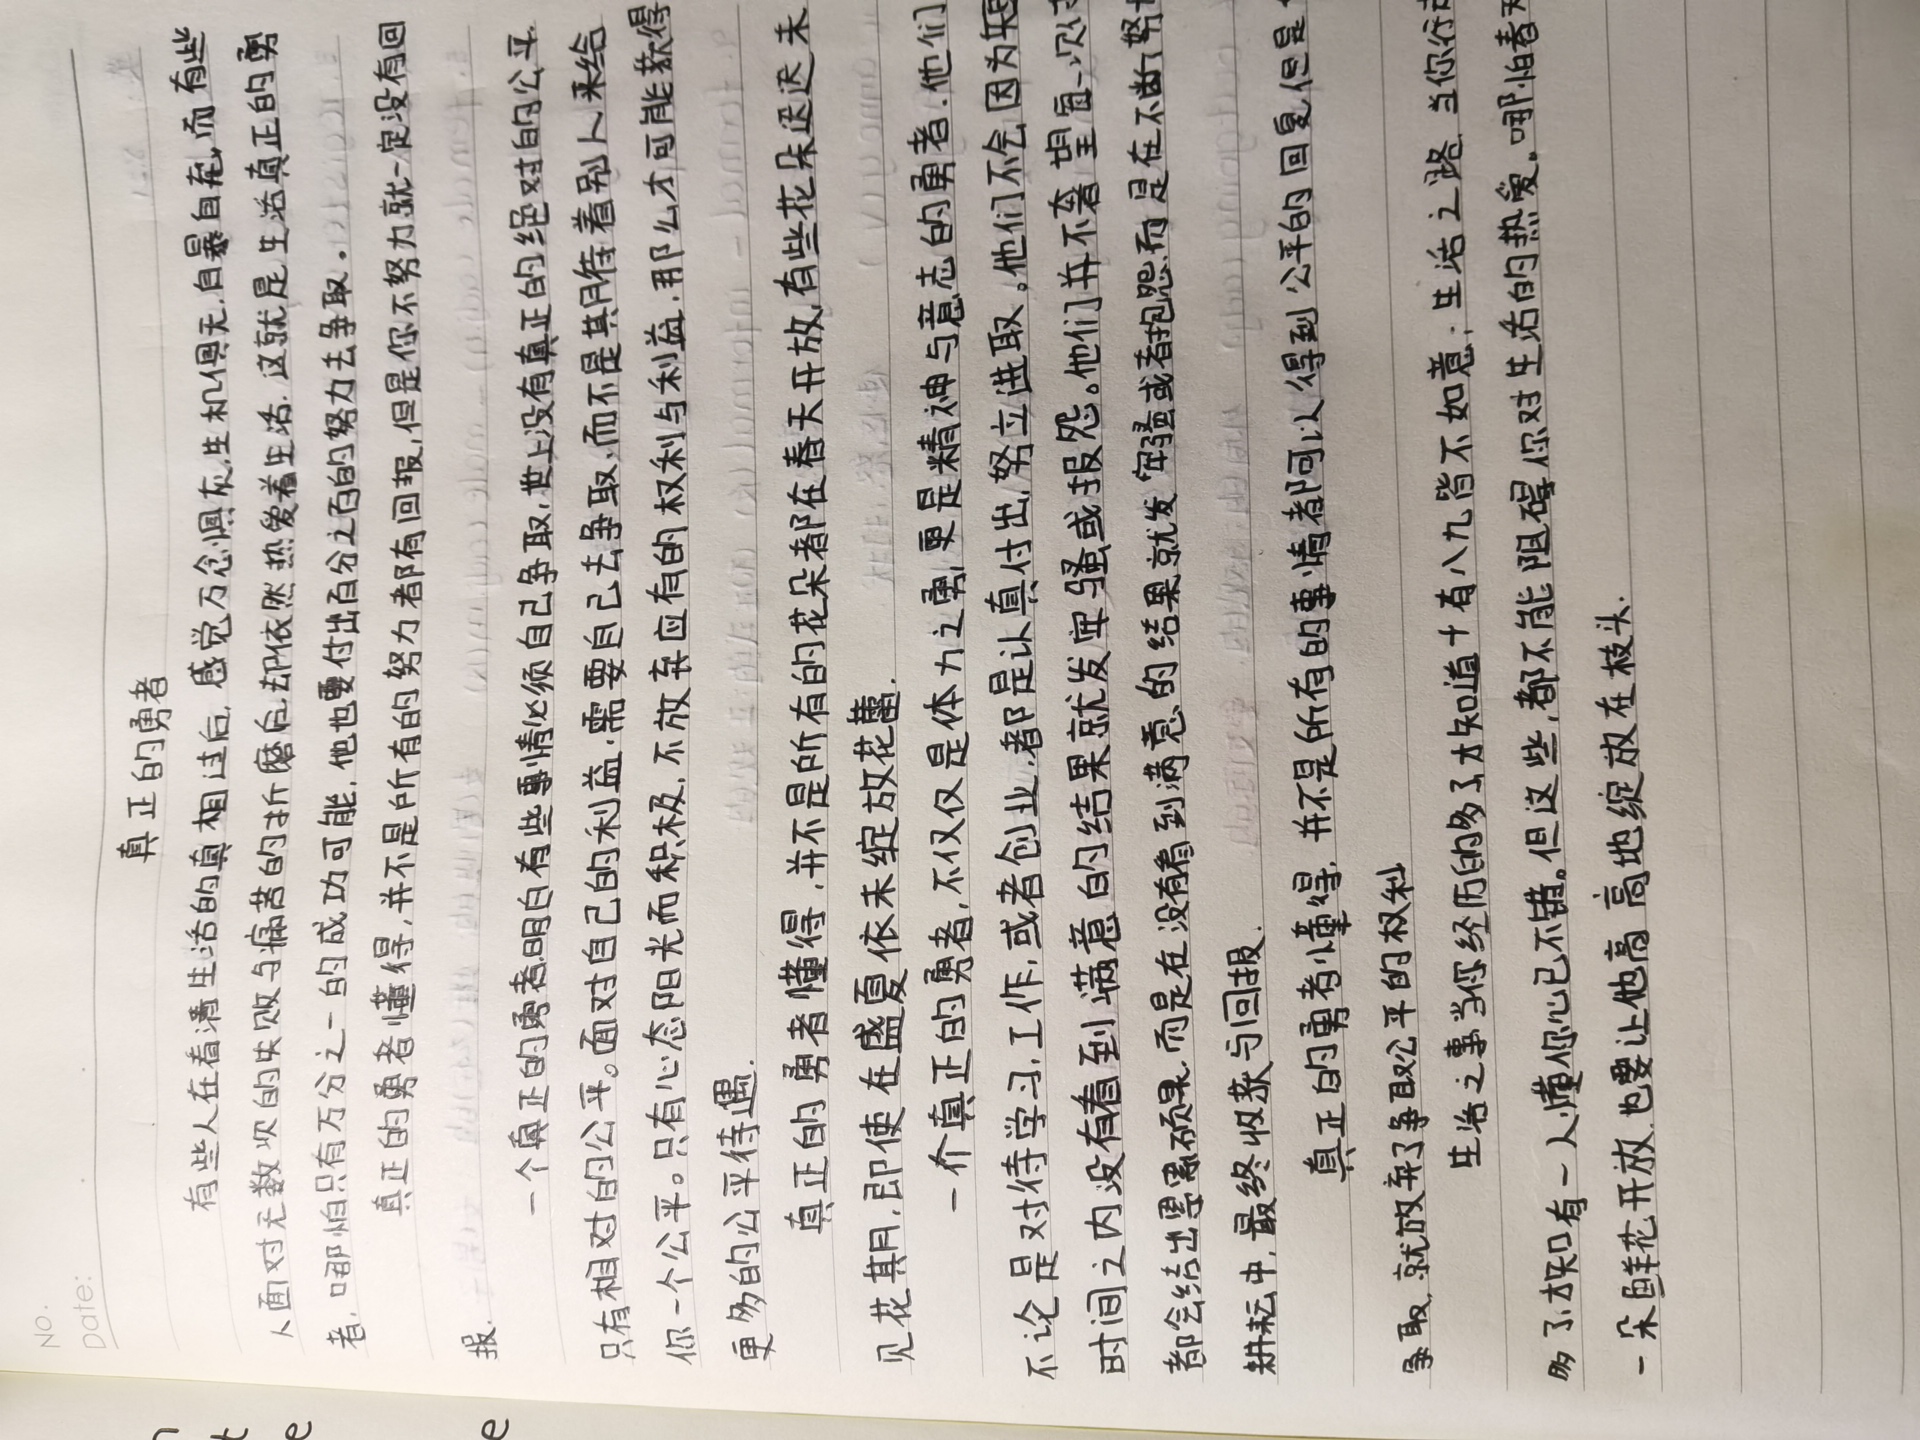 No.
Date:
真正的勇者
有些人在看清生活的真相过后,感觉万念俱灰,生机俱无,自暴自弃,而有些
人面对无数次的失败与痛苦的折磨后,却依然热爱着生活.这就是生活真正的勇
者,哪怕只有万分之一的成功可能,他也要付出百分之百的努力去争取.
真正的勇者懂得,并不是所有的努力都有回报,但是你不努力就一定没有回
报.
一个真正的勇者.明白有些事情必须自己争取,世上没有真正的绝对的公平
只有相对的公平。面对自己的利益.需要自己去争取,而不是期待着别人来给
你一个公平。只有心态阳光而积极,不放弃应有的权利与利益.那么才可能获得
更多的公平待遇.
真正的勇者懂得,并不是所有的花朵都在春天开放,有些花朵迟迟未
见花期,即使在盛夏依未绽放花蕾.
一个真正的勇者,不仅仅是体力之勇,更是精神与意志的勇者.他们
不论是对待学习,工作,或者创业,都是认真付出,努立进取。他们不会因为短
时间之内没有看到满意的结果就发牢骚或报怨。他们并不奢望每一次
都会结出累累硕果.而是在没有看到满意的结果就发牢骚或者抱怨.而是在不断努
耕耘中,最终收获与回报.
真正的勇者懂得,并不是所有的事情都可以得到公平的回复但是
争取,就放弃了争取公平的权利
生活之事当你经历的多了才知道十有八九皆不如意;生活之路,当你行
多了,才知有一人懂你心已不错。但这些,都不能阻碍你对生活的热爱。哪怕春
一朵鲜花开放,也要让他高高地绽放在枝头.